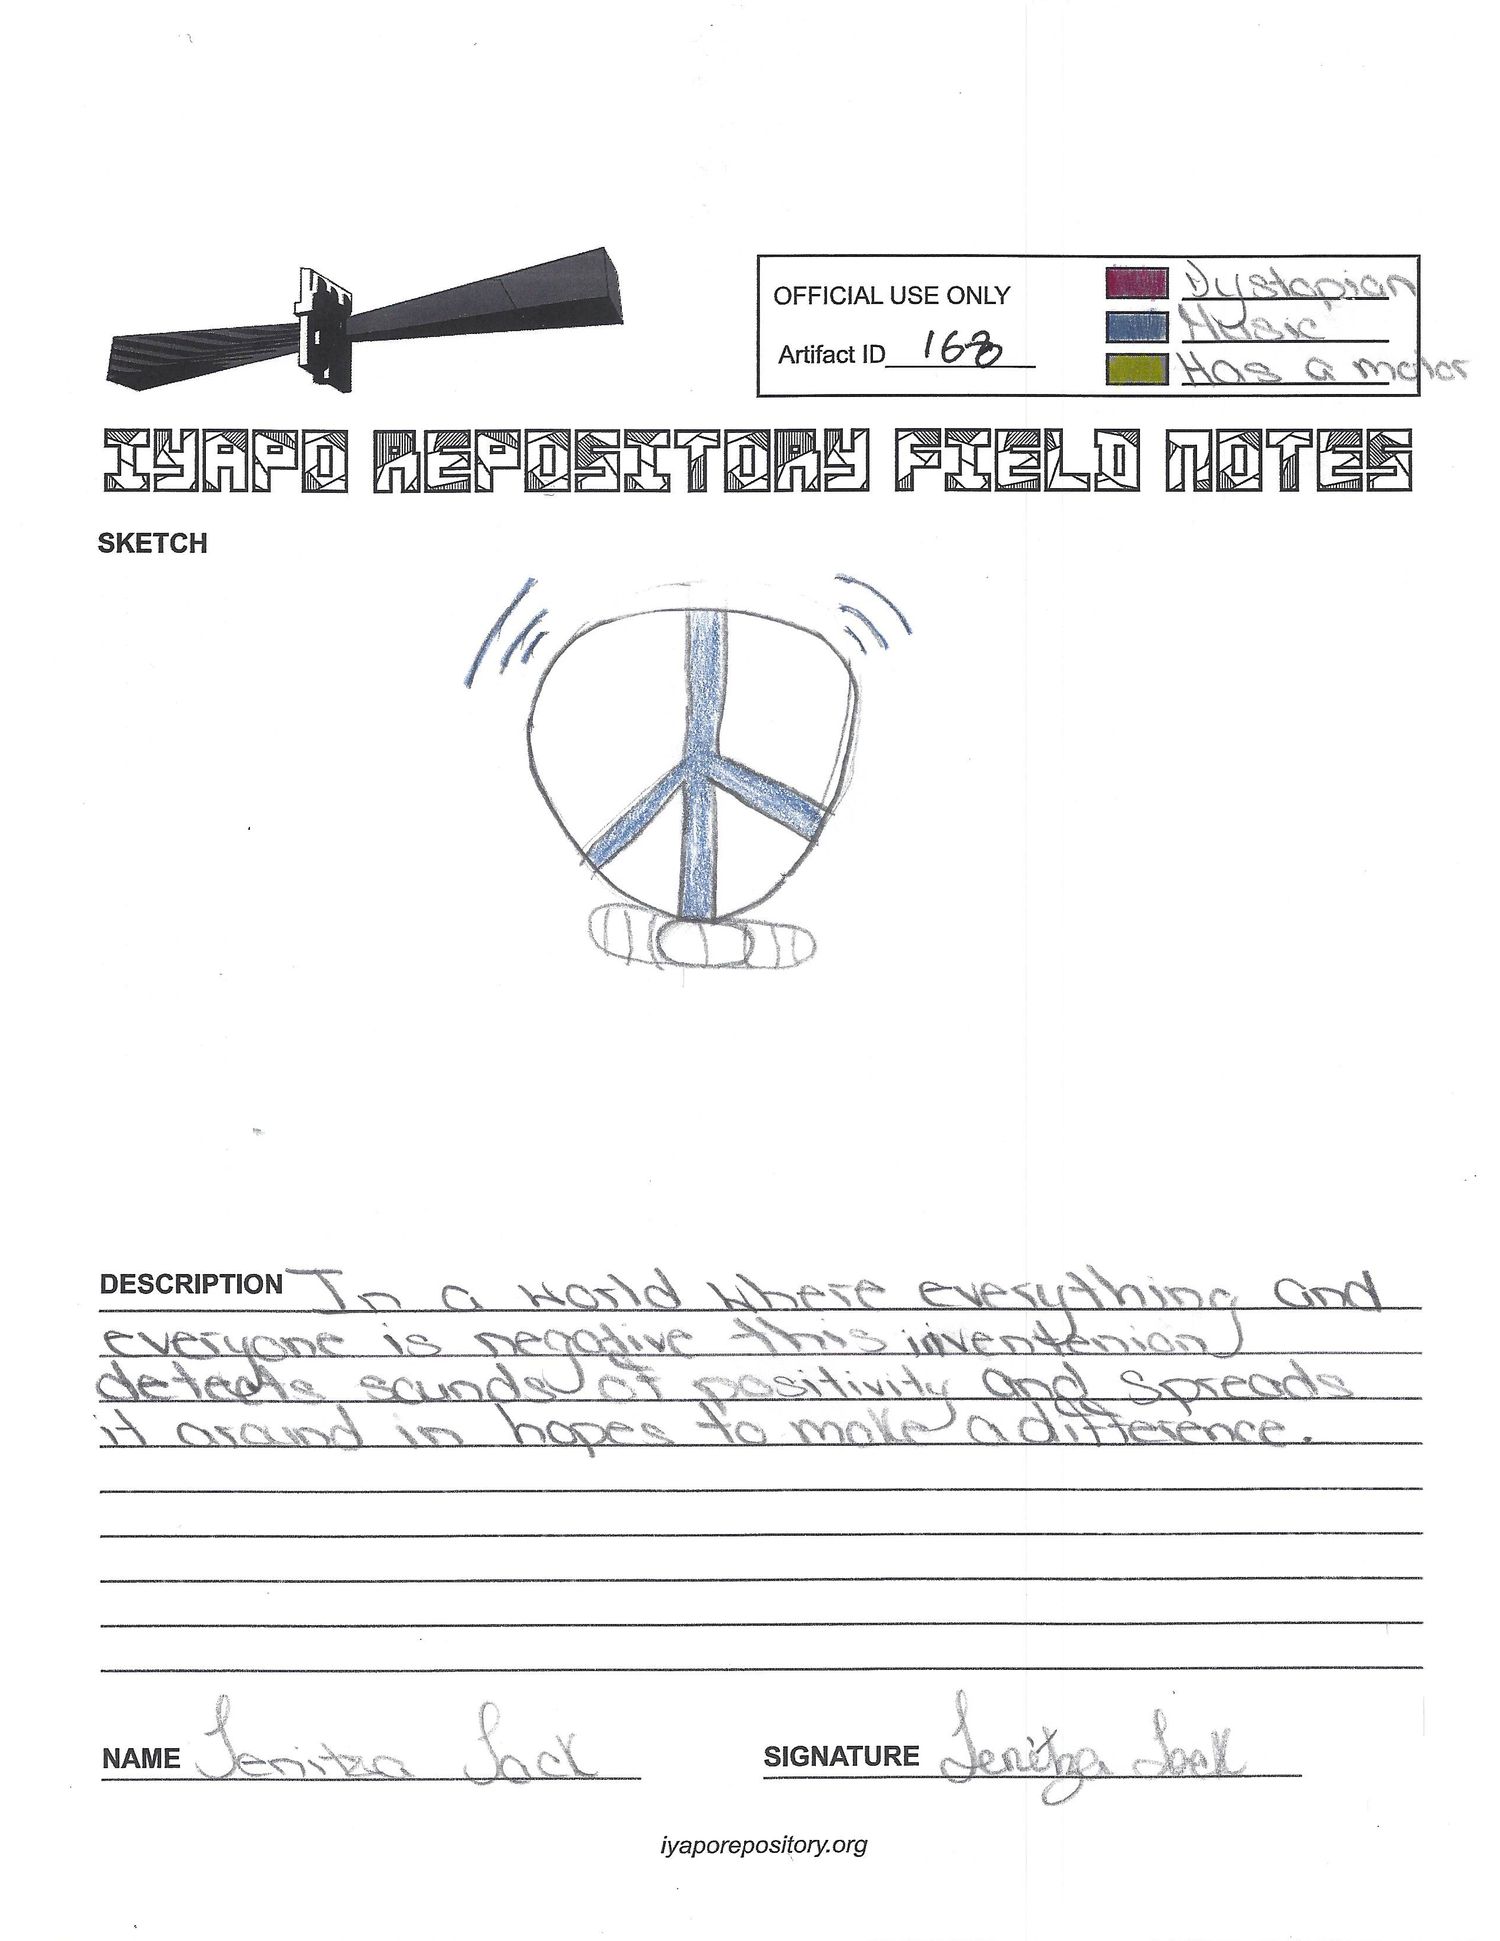 OFFICIAL USE ONLY
Dystopian
Music
Artifact ID 168
Has a motor
IYAPO REPOSITORY FIELD NOTES
SKETCH
DESCRIPTION In a world where everything and
everyone is negative this inventenion
detects sounds of positivity and spreads
it around in hopes to make a difference.
NAME Jenitza Jack
SIGNATURE Jenitza Jack
iyaporepository.org